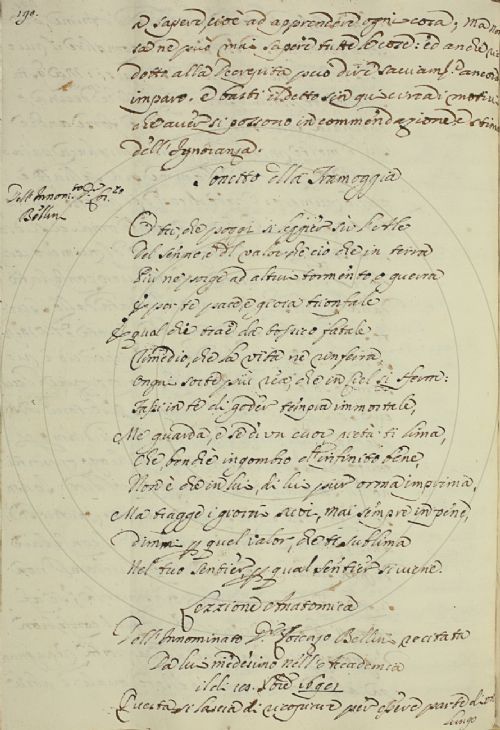 190.
a sapere cioè ad apprendere ogni cosa; ma non
sa ne può mai sapere tutte le cose: ed anche
dotto alla decrepità può dire ancora
imparo. E basti il detto sin qui circa i motivi
che aver si possono in commendazione, e stima
dell'Ignoranza.
Sonetto alla Tramoggia
Dell'Innom.to
Bellini
O tu, che poggi sì leggier su l'Ale
Del senno, e 'l valor che ciò che in terra
Più ne porge ad altrui tormento, e guerra
per te pace, e gioia trionfale
qual che trae da tosco fatale
Rimedio, che la vita ne
Ogni sorte più ria, che in Ciel si serra:
te di goder tempra immortale,
Me guarda, e se di un cuor pietà ti lima,
Che bench'è ingombro all'infinito bene,
Non è che in lui, di lui pur orma imprima,
Ma tragge i giorni suoi, mai sempre in pene,
Dimmi quel valor, che ti sublima
Nel tuo sentier, qual sentier si tiene.
Lezzione Anatomica
Dell'Innominato Bellini recitata
Da lui medesimo nell'Academia
il dì 10. 1691
Questa si lascia di per essere parte di
lungo